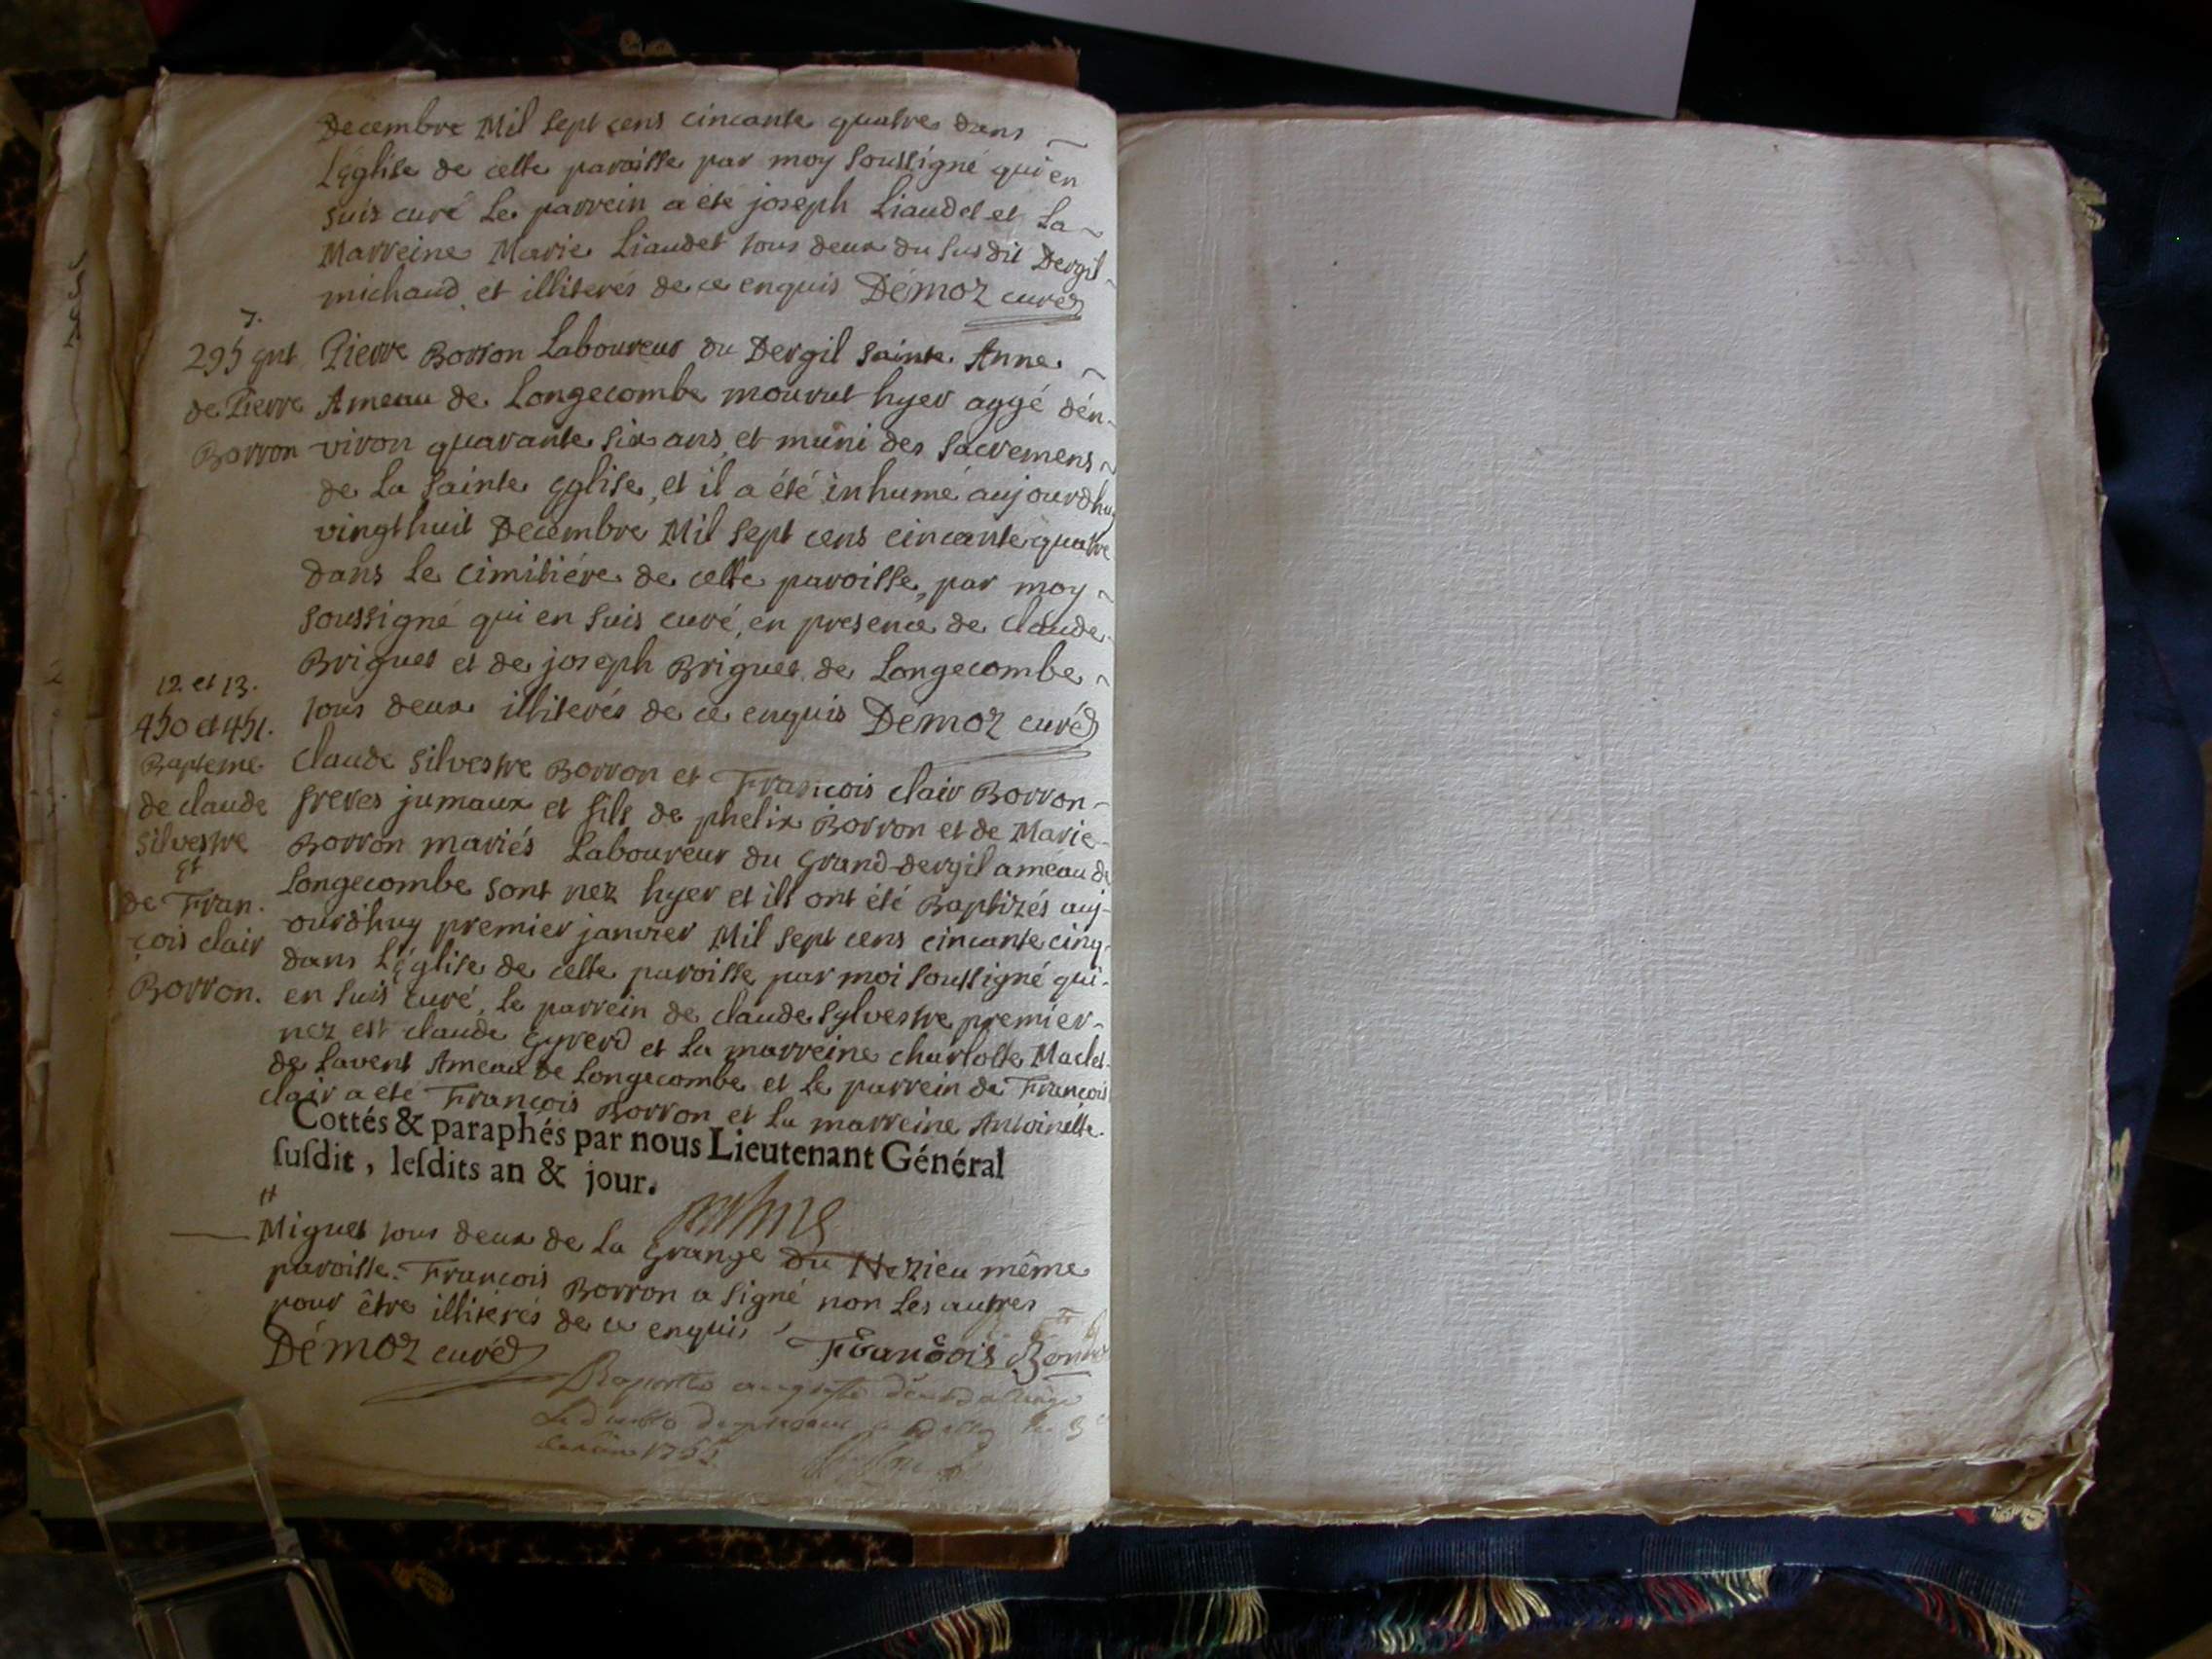 Decembre Mil sept cens cincante quatre dans
L'église de cette paroisse par moy soussigné qui en
suis curé Le parrein a été joseph Liaudet et La
Marreine Marie Liaudet tous deux du susdit Dergil
michaud et illiterés de ce enquis Démoz curé
7.
295 ent Pierre Borron Laboureur du Dergil sainte Anne
de Pierre Ameau de Longecombe mourut hyer aggé d'en-
Borron viron quarante six ans, et muni des sacremens
de La sainte église, et il a été inhumé aujourdhuy
vingthuit Decembre Mil sept cens cincante quatre
dans Le cimitiére de cette paroisse, par moy
soussigné qui en suis curé, en presence de claude
Brigues et de joseph Brigues de Longecombe
tous deux illiterés de ce enquis Démoz curé
12 et 13.
450 et 451.
Bapteme
de claude
silvestre
et
de Fran.
çois clair
Borron.
claude silvestre Borron et François clair Borron
freres jumaux et fils de phelix Borron et de Marie
Borron mariés Laboureur du Grand-dergil ameau de
Longecombe sont nez hyer et ils ont été Baptizés auj-
ourd'huy premier janvier Mil sept cens cincante cinq
dans L'église de cette paroisse par moi soussigné qui
en suis curé, Le parrein de claude sylvestre premier
nez est claude Gyrerd et La marreine charlotte Maclet
de Lavent Ameau de Longecombe et Le parrein de François
clair a été François Borron et La marreine Antoinette
Cottés & paraphés par nous Lieutenant Général
ſuſdit, leſdits an & jour.
Miguet tous deux de La Grange du Nezieu même
paroisse. François Borron a signé non Les autres
pour être illiterés de ce enquis
Démoz curé François
1755